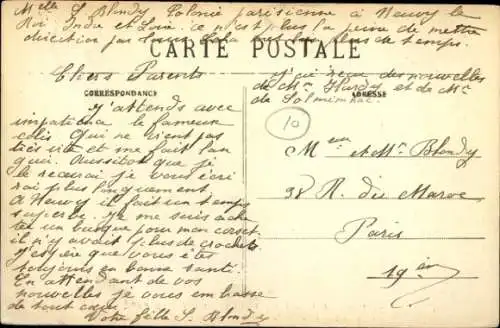 Melle S. Blondy Colonie parisienne à Neuvy le
Roi Indre et Loire. Ce n'est plus la peine de mettre
direction pas tours plus de temps.
CARTE POSTALE
J'ai reçu des nouvelles
de Mr Hardy et de Mr
de Solminhac.
CORRESPONDANCE
ADRESSE
10
Chers Parents
J'attends avec
impatience le fameux
colis qui ne vient pas
très vite et me fait lan
guir. Aussitôt que je
le recevrai je vous écri
rai plus longuement
A Neuvy il fait un temps
superbe. Je me suis ache
ter un busque pour mon corset
il n'y avait plus de crochets
J'espère que vous êtes
toujours en bonne santé.
En attendant de vos
nouvelles je vous embrasse
de tout cœur.
Votre fille S. Blondy
Meur et Mme Blondy
38 R. du Maroc
Paris
19ème